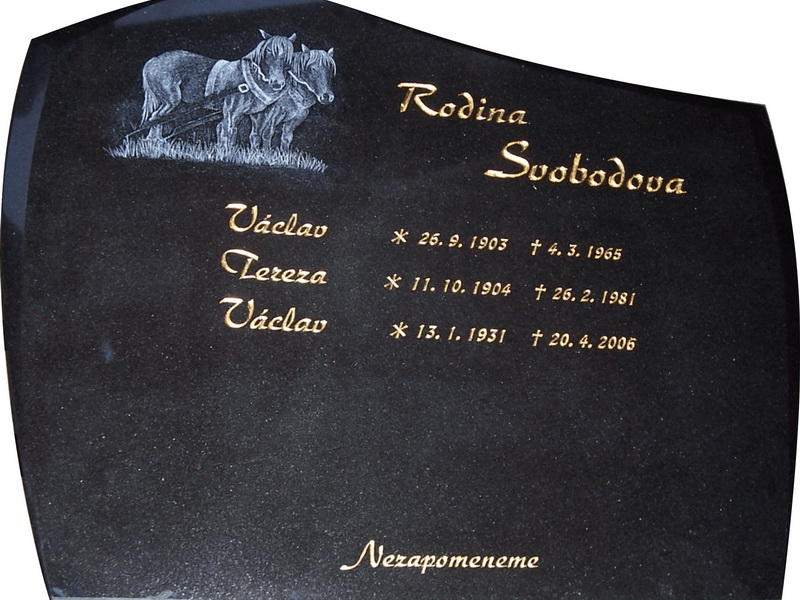 Rodina
Svobodova
Václav * 26. 9. 1903 † 4. 3. 1965
Tereza * 11. 10. 1904 † 26. 2. 1981
Václav * 13. 1. 1931 † 20. 4. 2006
Nezapomeneme